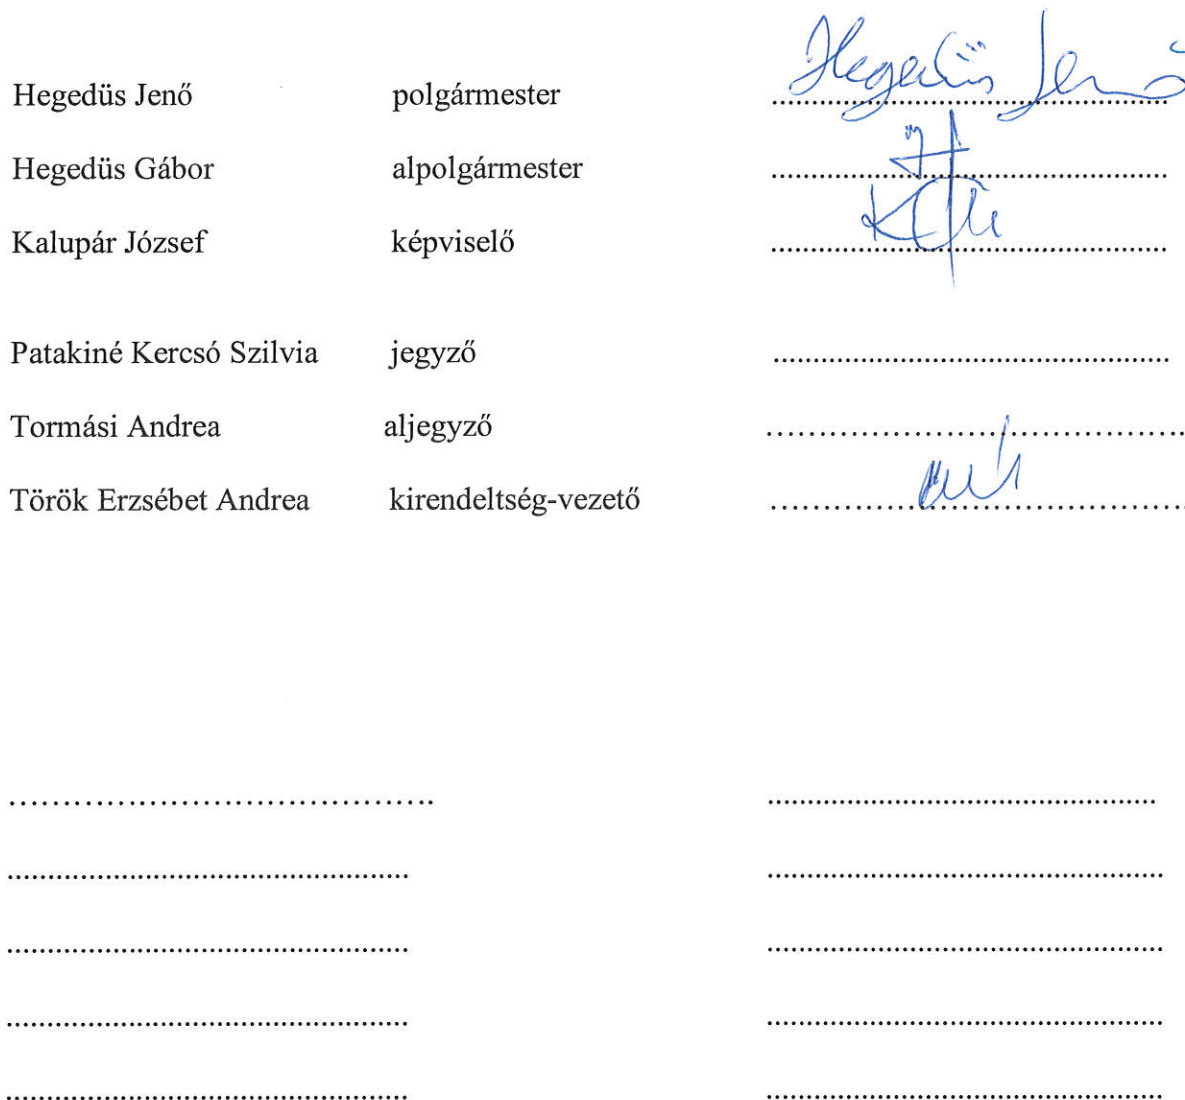 Hegedüs Jenő polgármester Hegedüs Jenő
Hegedüs Gábor alpolgármester
Kalupár József képviselő
Patakiné Kercsó Szilvia jegyző
Tormási Andrea aljegyző
Török Erzsébet Andrea kirendeltség-vezető